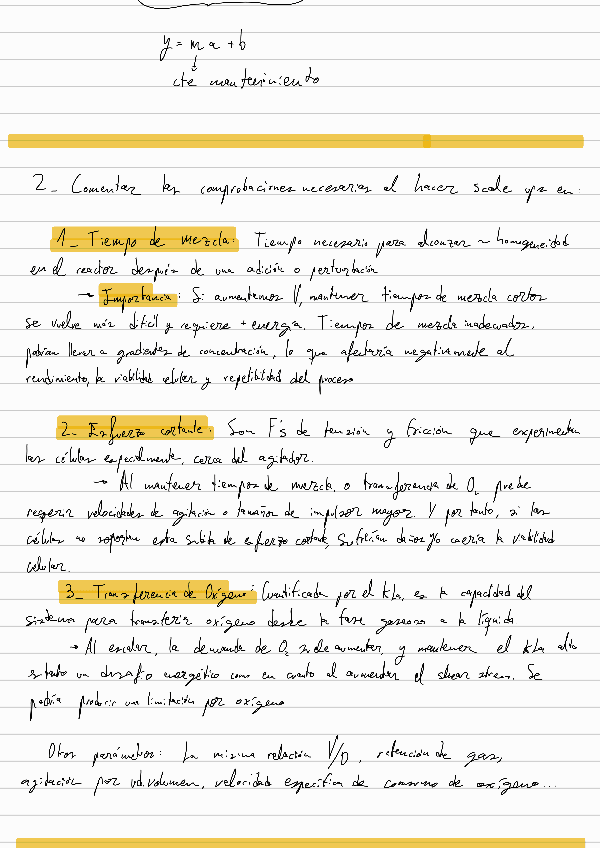 y = m x + b
↓
cte mantenimiento
2_ Comentar las comprobaciones necesarias al hacer scale ups en:
1_ Tiempo de mezcla: Tiempo necesario para alcanzar ~ homogeneidad
en el reactor después de una adición o perturbación
→ Importancia: Si aumentamos V, mantener tiempos de mezcla cortos
se vuelve más difícil y requiere + energía. Tiempos de mezcla inadecuados,
podrían llevar a gradientes de concentración, lo que afectaría negativamente al
rendimiento, la viabilidad celular y repetibilidad del proceso
2_ Esfuerzo cortante: Son F's de tensión y fricción que experimentan
las células especialmente, cerca del agitador.
→ Al mantener tiempos de mezcla, o transferencia de O₂ puede
requerir velocidades de agitación o tamaños de impulsor mayor. Y por tanto, si las
células no soportan esta subida de esfuerzo cortante, sufrirían daños y/o caería la viabilidad
celular.
3_ Transferencia de Oxígeno: Cuantificada por el kLa, es la capacidad del
sistema para transferir oxígeno desde la fase gaseosa a la líquida
→ Al escalar, la demanda de O₂ suele aumentar, y mantener el kLa alto
es tanto un desafío energético como en cuanto al aumentar el shear stress. Se
podría producir una limitación por oxígeno
Otros parámetros: La misma relación V/D, retención de gas,
agitación por ud. volumen, velocidad específica de consumo de oxígeno...